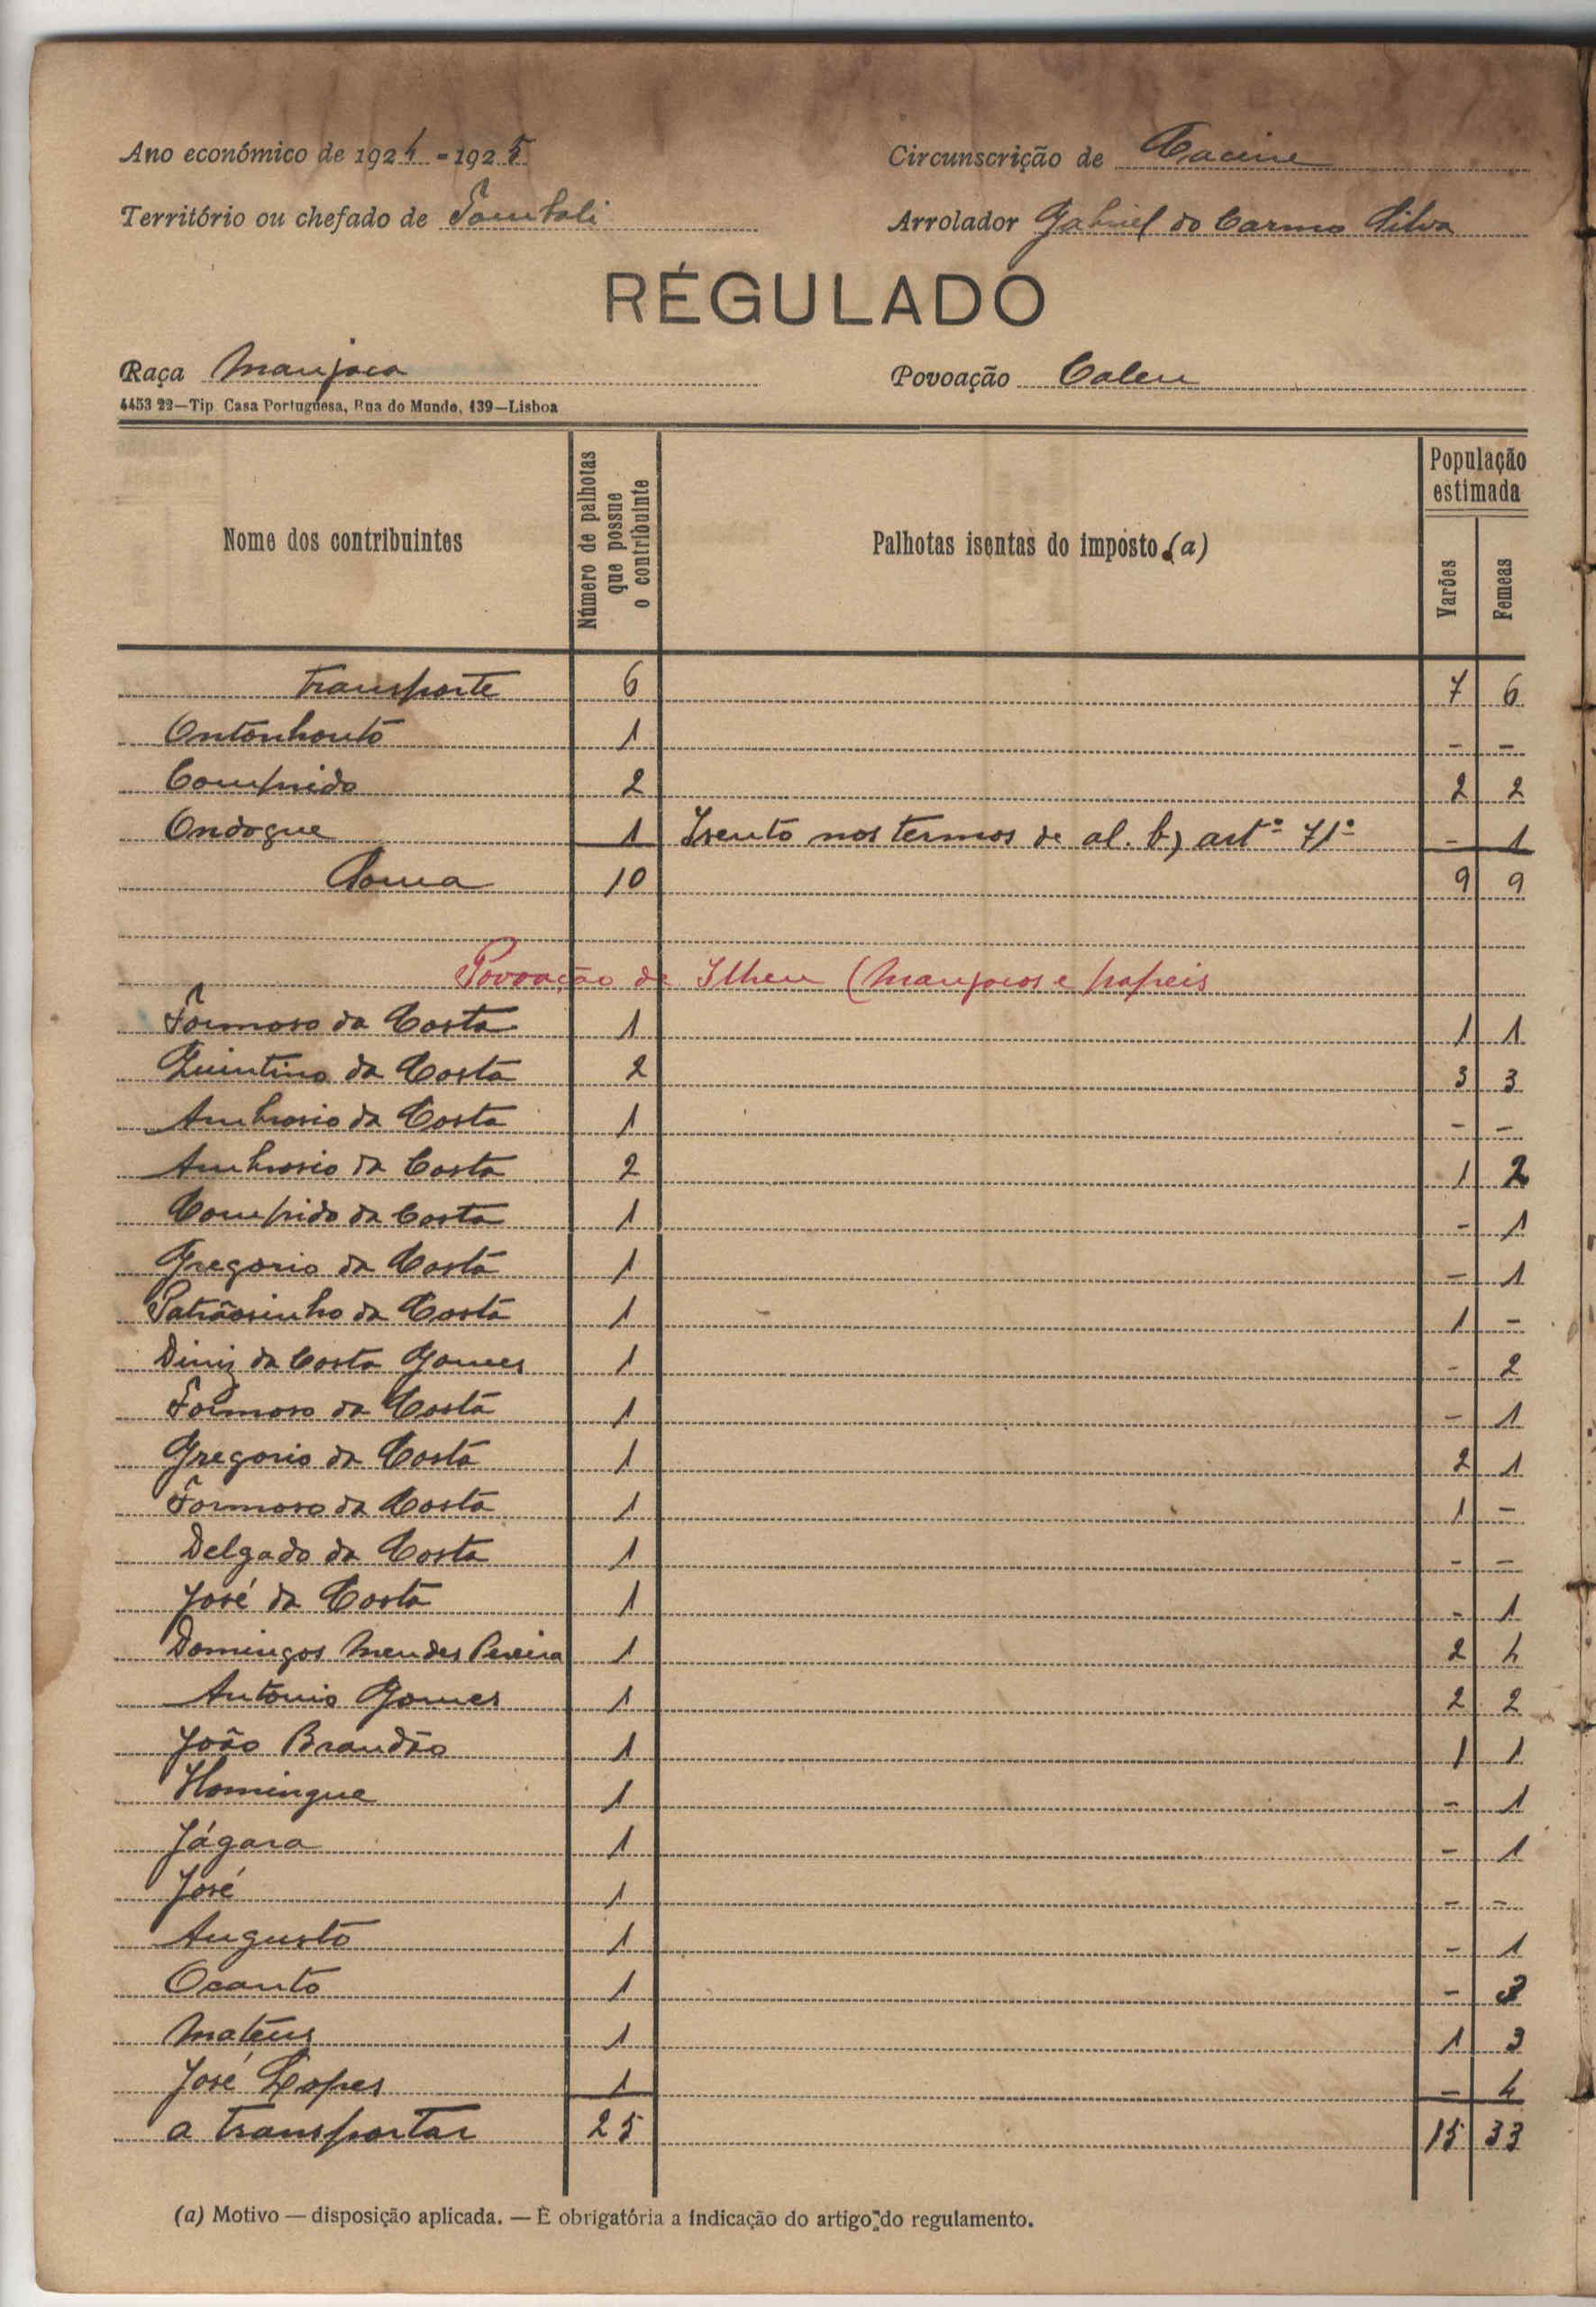 Ano económico de 1924-1925
Circunscrição de Cacine
Território ou chefado de Tombali
Arrolador Gabriel do Carmo Silva
RÉGULADO
Raça Manjaca
Povoação Caleu
4453 22—Tip. Casa Portuguesa, Rua do Mundo, 139—Lisboa
Nome dos contribuintes
Número de palhotas que possue o contribuinte
Palhotas isentas do imposto (a)
População estimada
Varões
Femeas
Transporte 6 7 6
Ontonhouto 1 - -
Comprido 2 2 2
Ondogue 1 Isento nos termos de al. b) artº 71º - 1
Soma 10 9 9
Povoação de Ilheu (Manjacos e papeis
Formoso da Costa 1 1 1
Quintino da Costa 2 3 3
Ambrosio da Costa 1 - -
Ambrosio da Costa 2 1 2
Comprido da Costa 1 - 1
Gregorio da Costa 1 - 1
Patrãosinho da Costa 1 1 -
Diniz da Costa Gomes 1 - 2
Formoso da Costa 1 - 1
Gregorio da Costa 1 2 1
Formoso da Costa 1 1 -
Delgado da Costa 1 - -
José da Costa 1 - 1
Domingos Mendes Pereira 1 2 4
Antonio Gomes 1 2 2
João Brandão 1 1 1
Homingue 1 - 1
Jágara 1 - 1
José 1 - -
Augusto 1 - 1
Ocanto 1 - 3
Matéus 1 1 3
José Lopes 1 - 4
a transportar 25 15 33
(a) Motivo — disposição aplicada. — É obrigatória a indicação do artigo do regulamento.